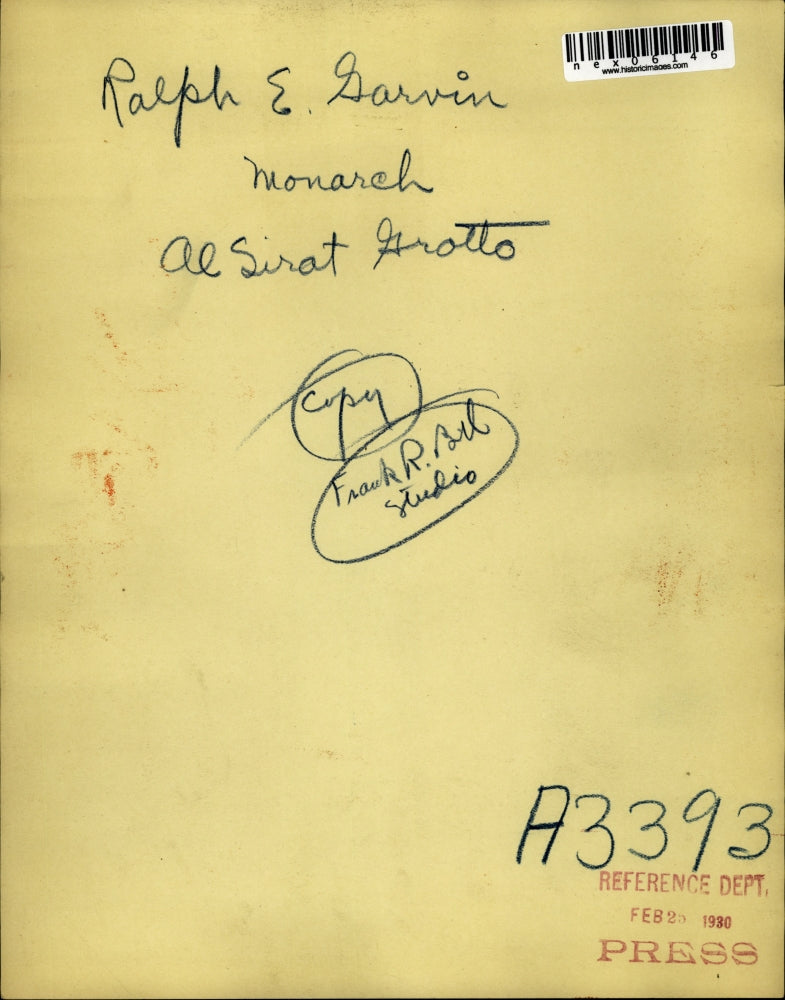 nex06146
www.historicimages.com
Ralph E. Garvin
Monarch
Al Sirat Grotto
Copy
Frank R.
Studio
A3393
REFERENCE DEPT.
FEB 1930
PRESS